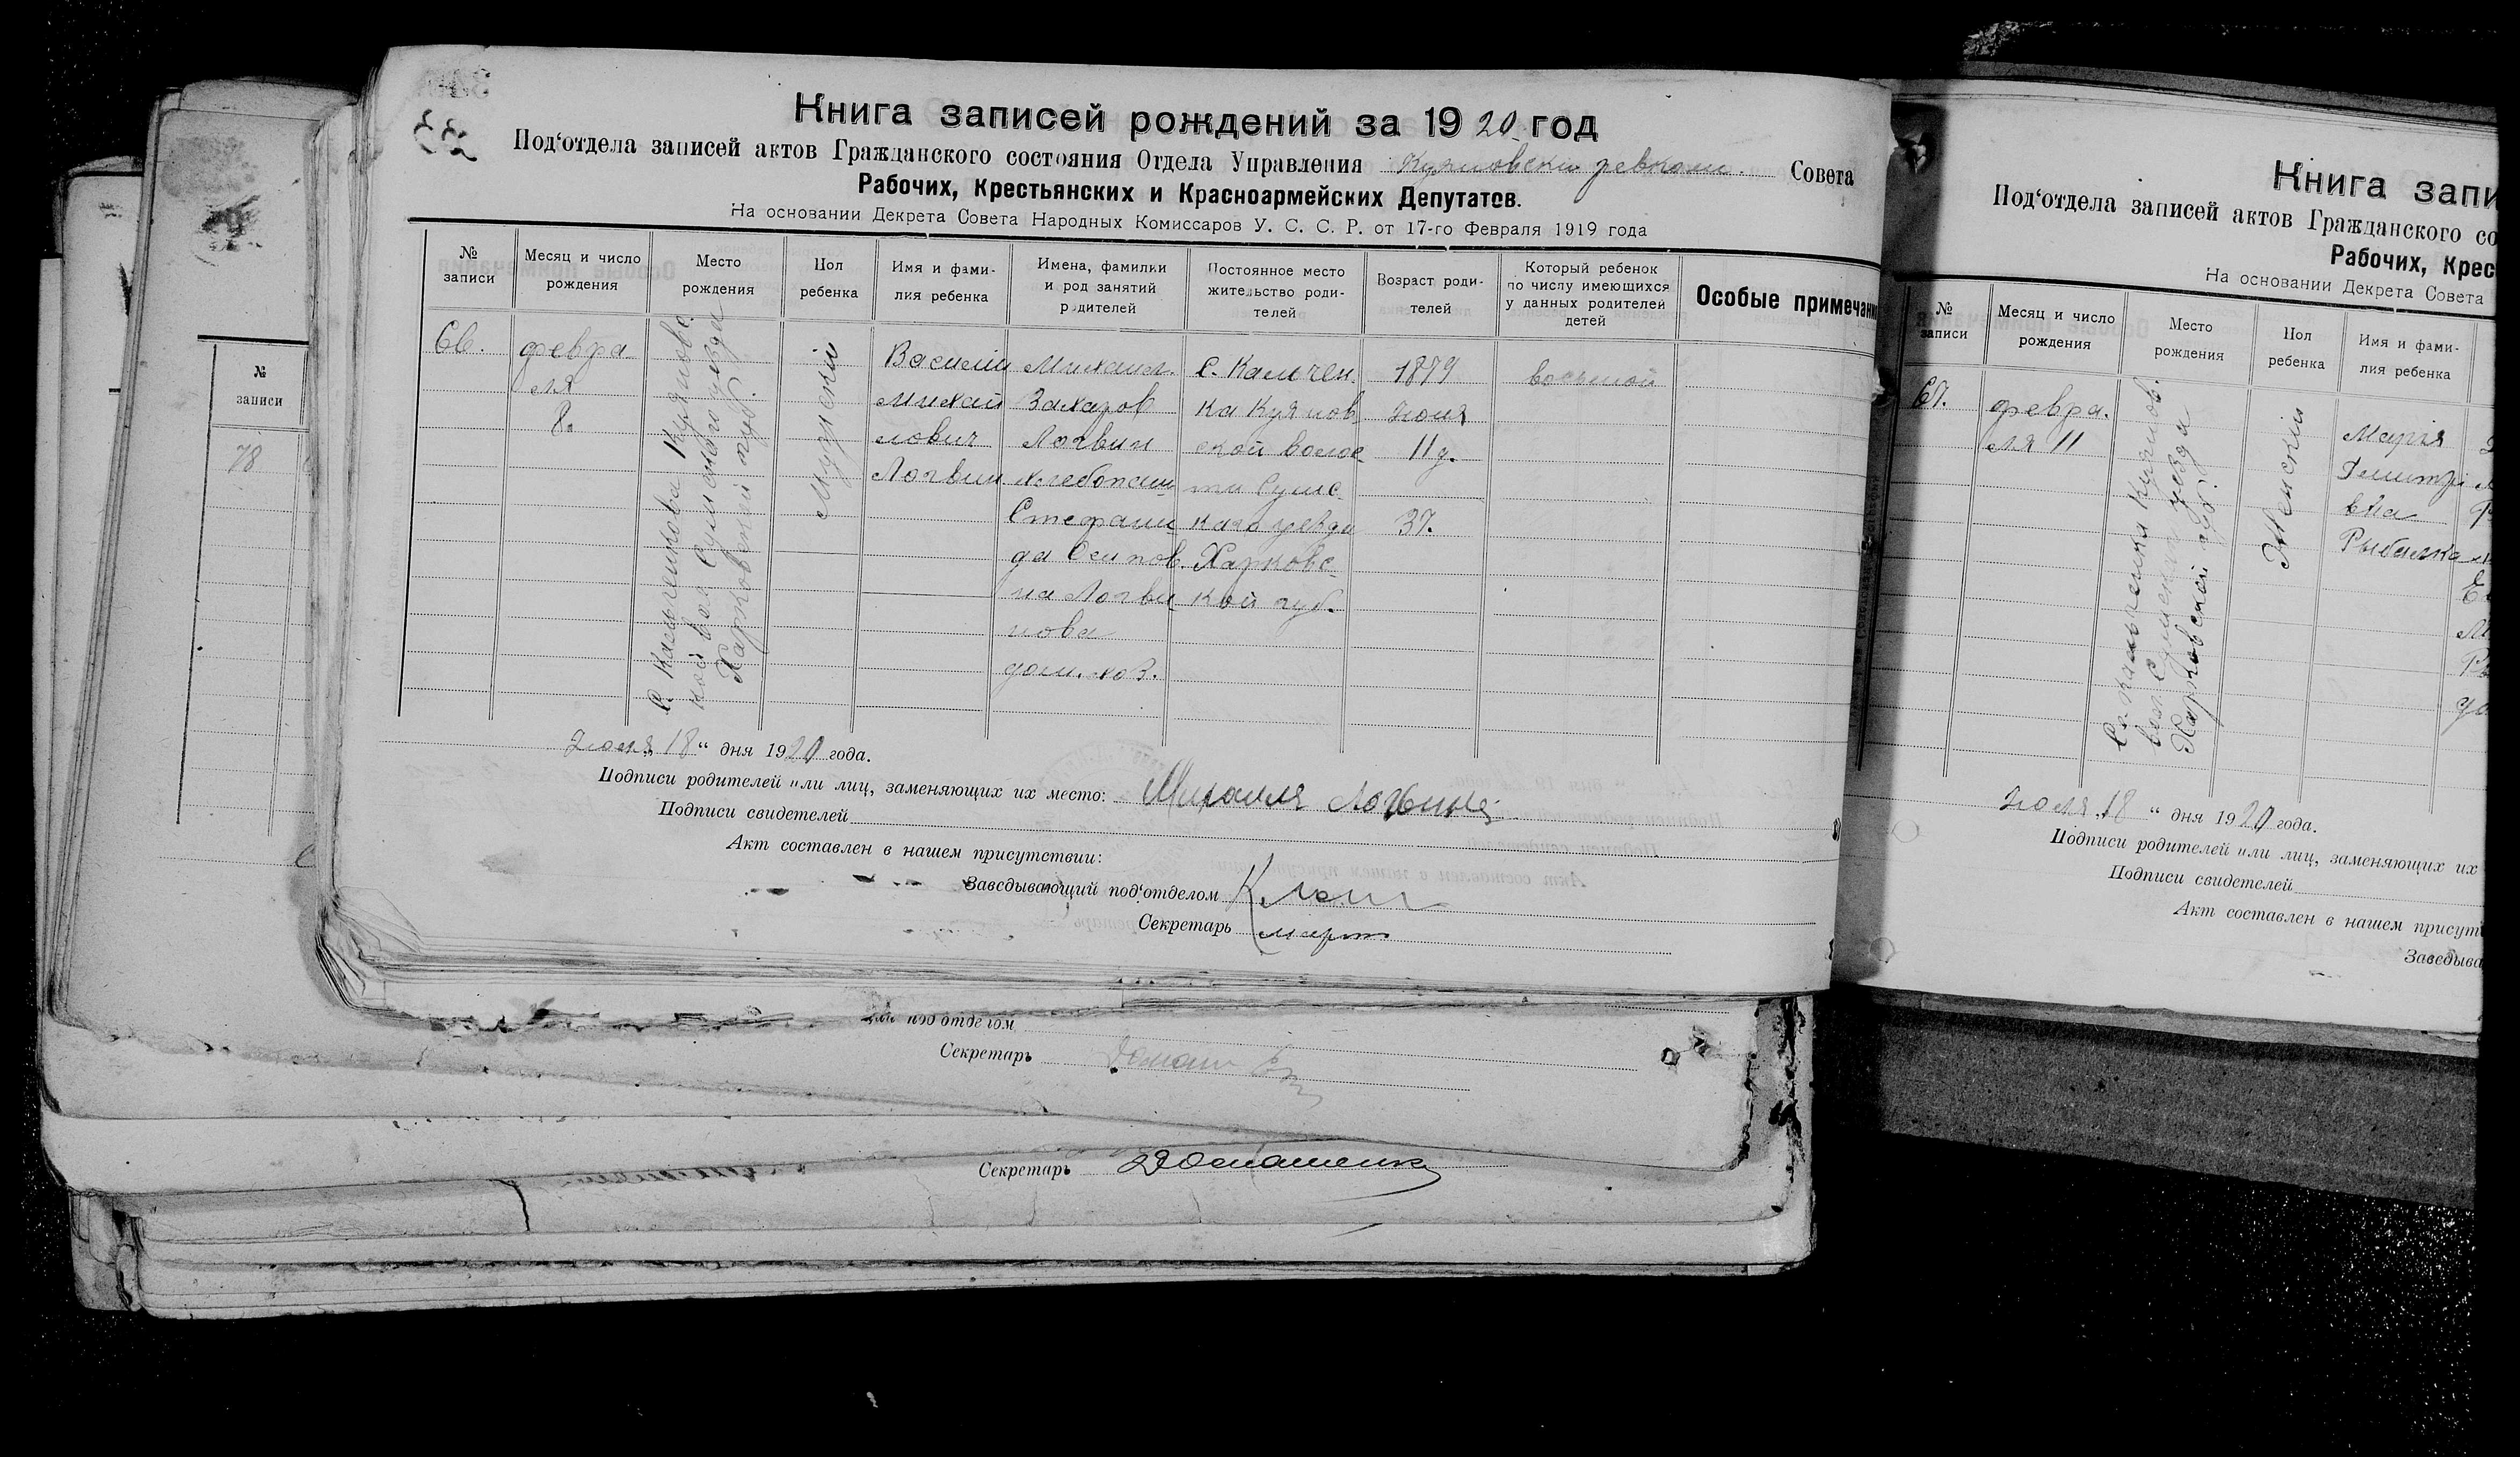 Книга записей рождений за 1920 год
Под'отдела записей актов Гражданского состояния Отдела Управления Куяновский ревком. Совета
Рабочих, Крестьянских и Красноармейских Депутатов.
На основании Декрета Совета Народных Комиссаров У. С. С. Р. от 17-го Февраля 1919 года
№ записи
Месяц и число рождения
Место рождения
Пол ребенка
Имя и фами-
лия ребенка
Имена, фамилии
и род занятий
родителей
Постоянное место
жительство роди-
телей
Возраст роди-
телей
Который ребенок
по числу имеющихся
у данных родителей
детей
Особые примечани
66.
февра
ля
8.
С. Кальченкова Куяновс.
кой вол Сумского уезда
Харковской губ.
Мужский
Василий
Михай
лович
Логвин
Михаил.
Захаров
Логвин
хлебопаш
Стефани
да Осипов.
на Логви
нова
дом. хоз.
С. Кальчен.
ка Куянов
ской волос
ти Сумс.
каго уезда
Харковс.
кой губ.
1879
Июля
11 д.
37.
восьмой
Июля „18 “ дня 1920 года.
Подписи родителей или лиц, заменяющих их место: Михаиля Логвина
Подписи свидетелей
Акт составлен в нашем присутствии:
Заведывающий под'отделом
Секретарь
под'отделом
Секретарь
Секретарь Домашенко
№
записи
78
Книга запи
Под'отдела записей актов Гражданского со
Рабочих, Крес
На основании Декрета Совета
№
записи
Месяц и число
рождения
Место
рождения
Пол
ребенка
Имя и фами-
лия ребенка
67.
февра.
ля 11
Сл Кальченка Куянов.
вол Сумский уезда
Харковской губ.
Женский
Мария
Дмитрi
вна
Рыбалка
Июля „18 “ дня 1920 года.
Подписи родителей или лиц, заменяющих их
Подписи свидетелей
Акт составлен в нашем присут
Заведыва